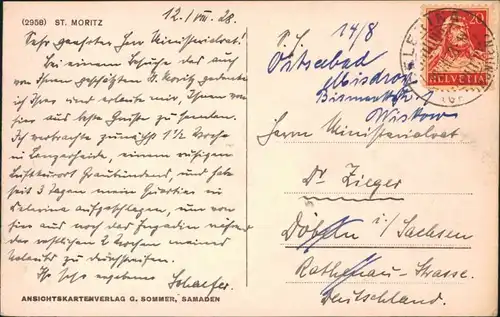 (2958) ST. MORITZ
12./VIII. 28.
Sehr geehrter Herr Ministerialrat!
Bei einem Besuche des auch
von Ihnen geschätzten St. Moritz gedenke
ich Ihrer und erlaube mir, Ihnen von
hier aus beste Grüße zu senden.
Ich verbrachte zunächst 1½ Woche
in Lenzerheide, einem ruhigen
Luftkurort Graubündens, und habe
seit 3 Tagen mein Quartier in
Celerina aufgeschlagen, um von
hier aus noch das Engadin während
der restlichen 2 Wochen meines
Urlaubs zu durchstreifen.
Ihr sehr ergebener
Schaefer.
ANSICHTSKARTENVERLAG G. SOMMER, SAMADEN
14/8
Ostseebad
Misdroy
Bismarckstr. 1
Herrn Ministerialrat
Dr Zieger
Döbeln i/Sachsen
Rathenau-Strasse.
Deutschland.
20
HELVETIA